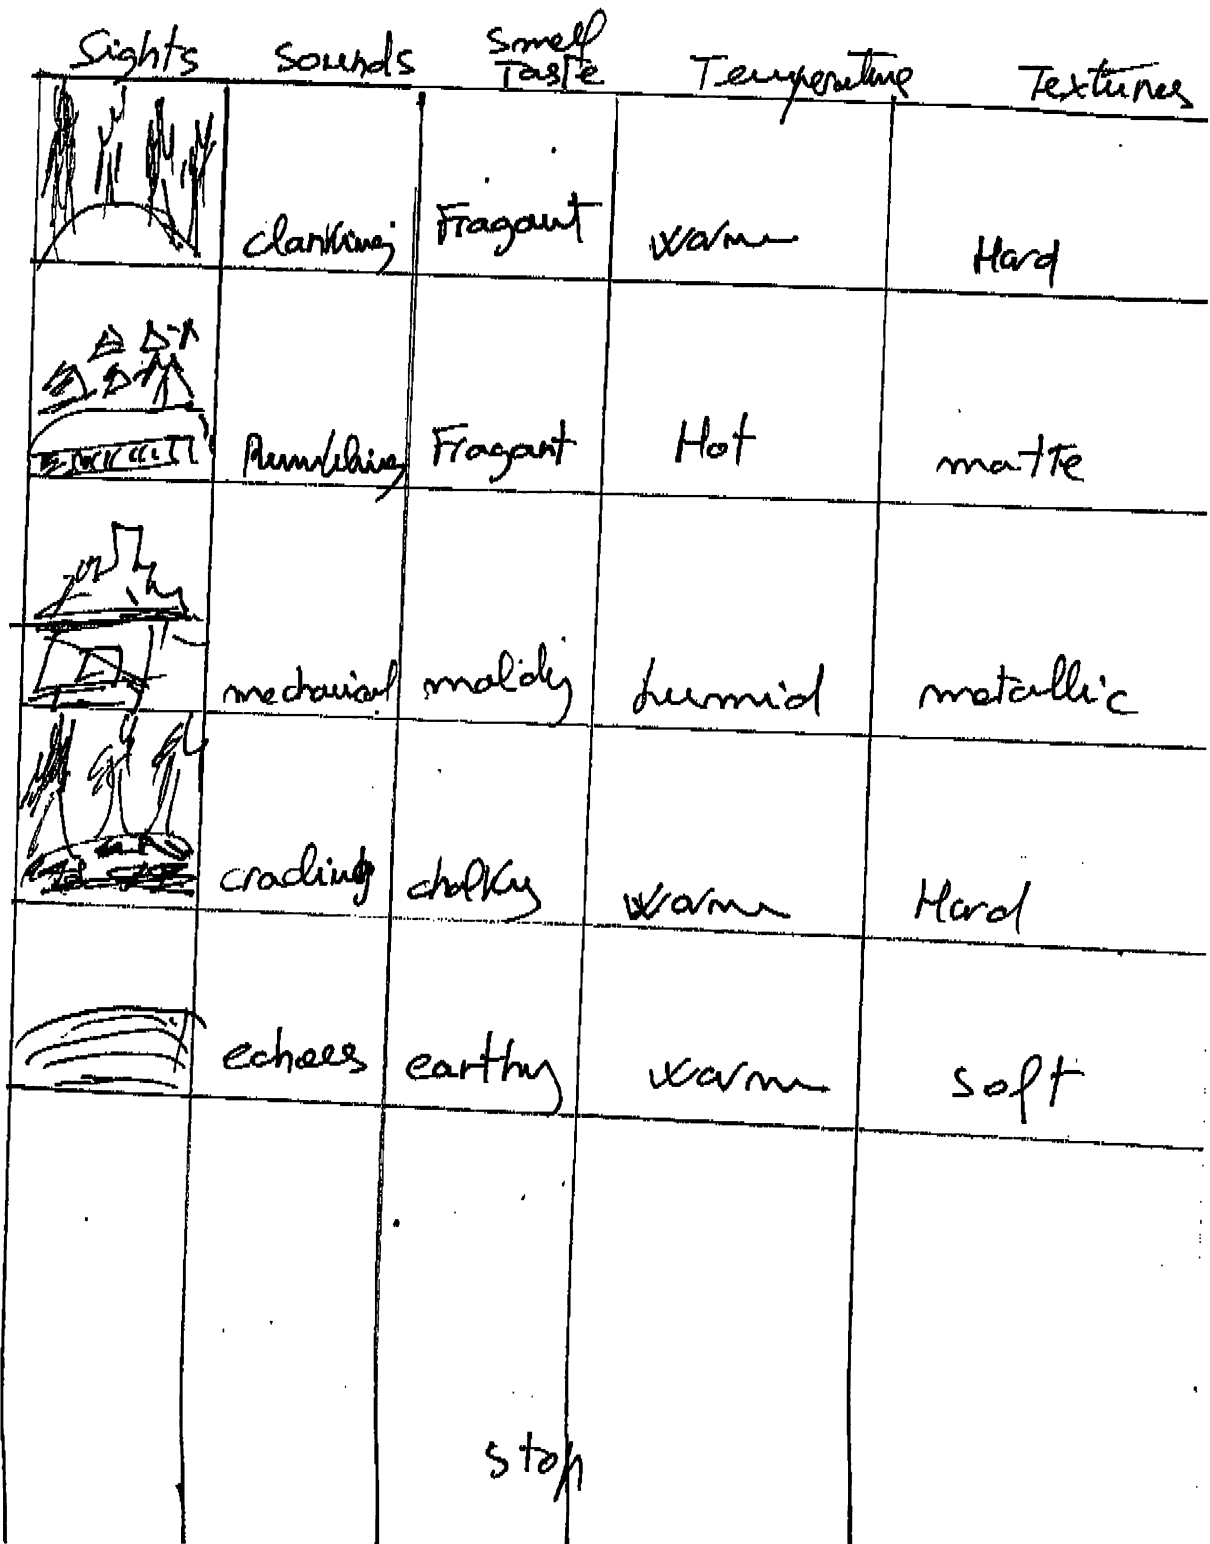 Sights Sounds Smell Taste Temperature Textures
clanking Fragant warm Hard
Fragant Hot matte
mechanical moldy humid metallic
chalky warm Hard
echoes earthy warm soft
stop